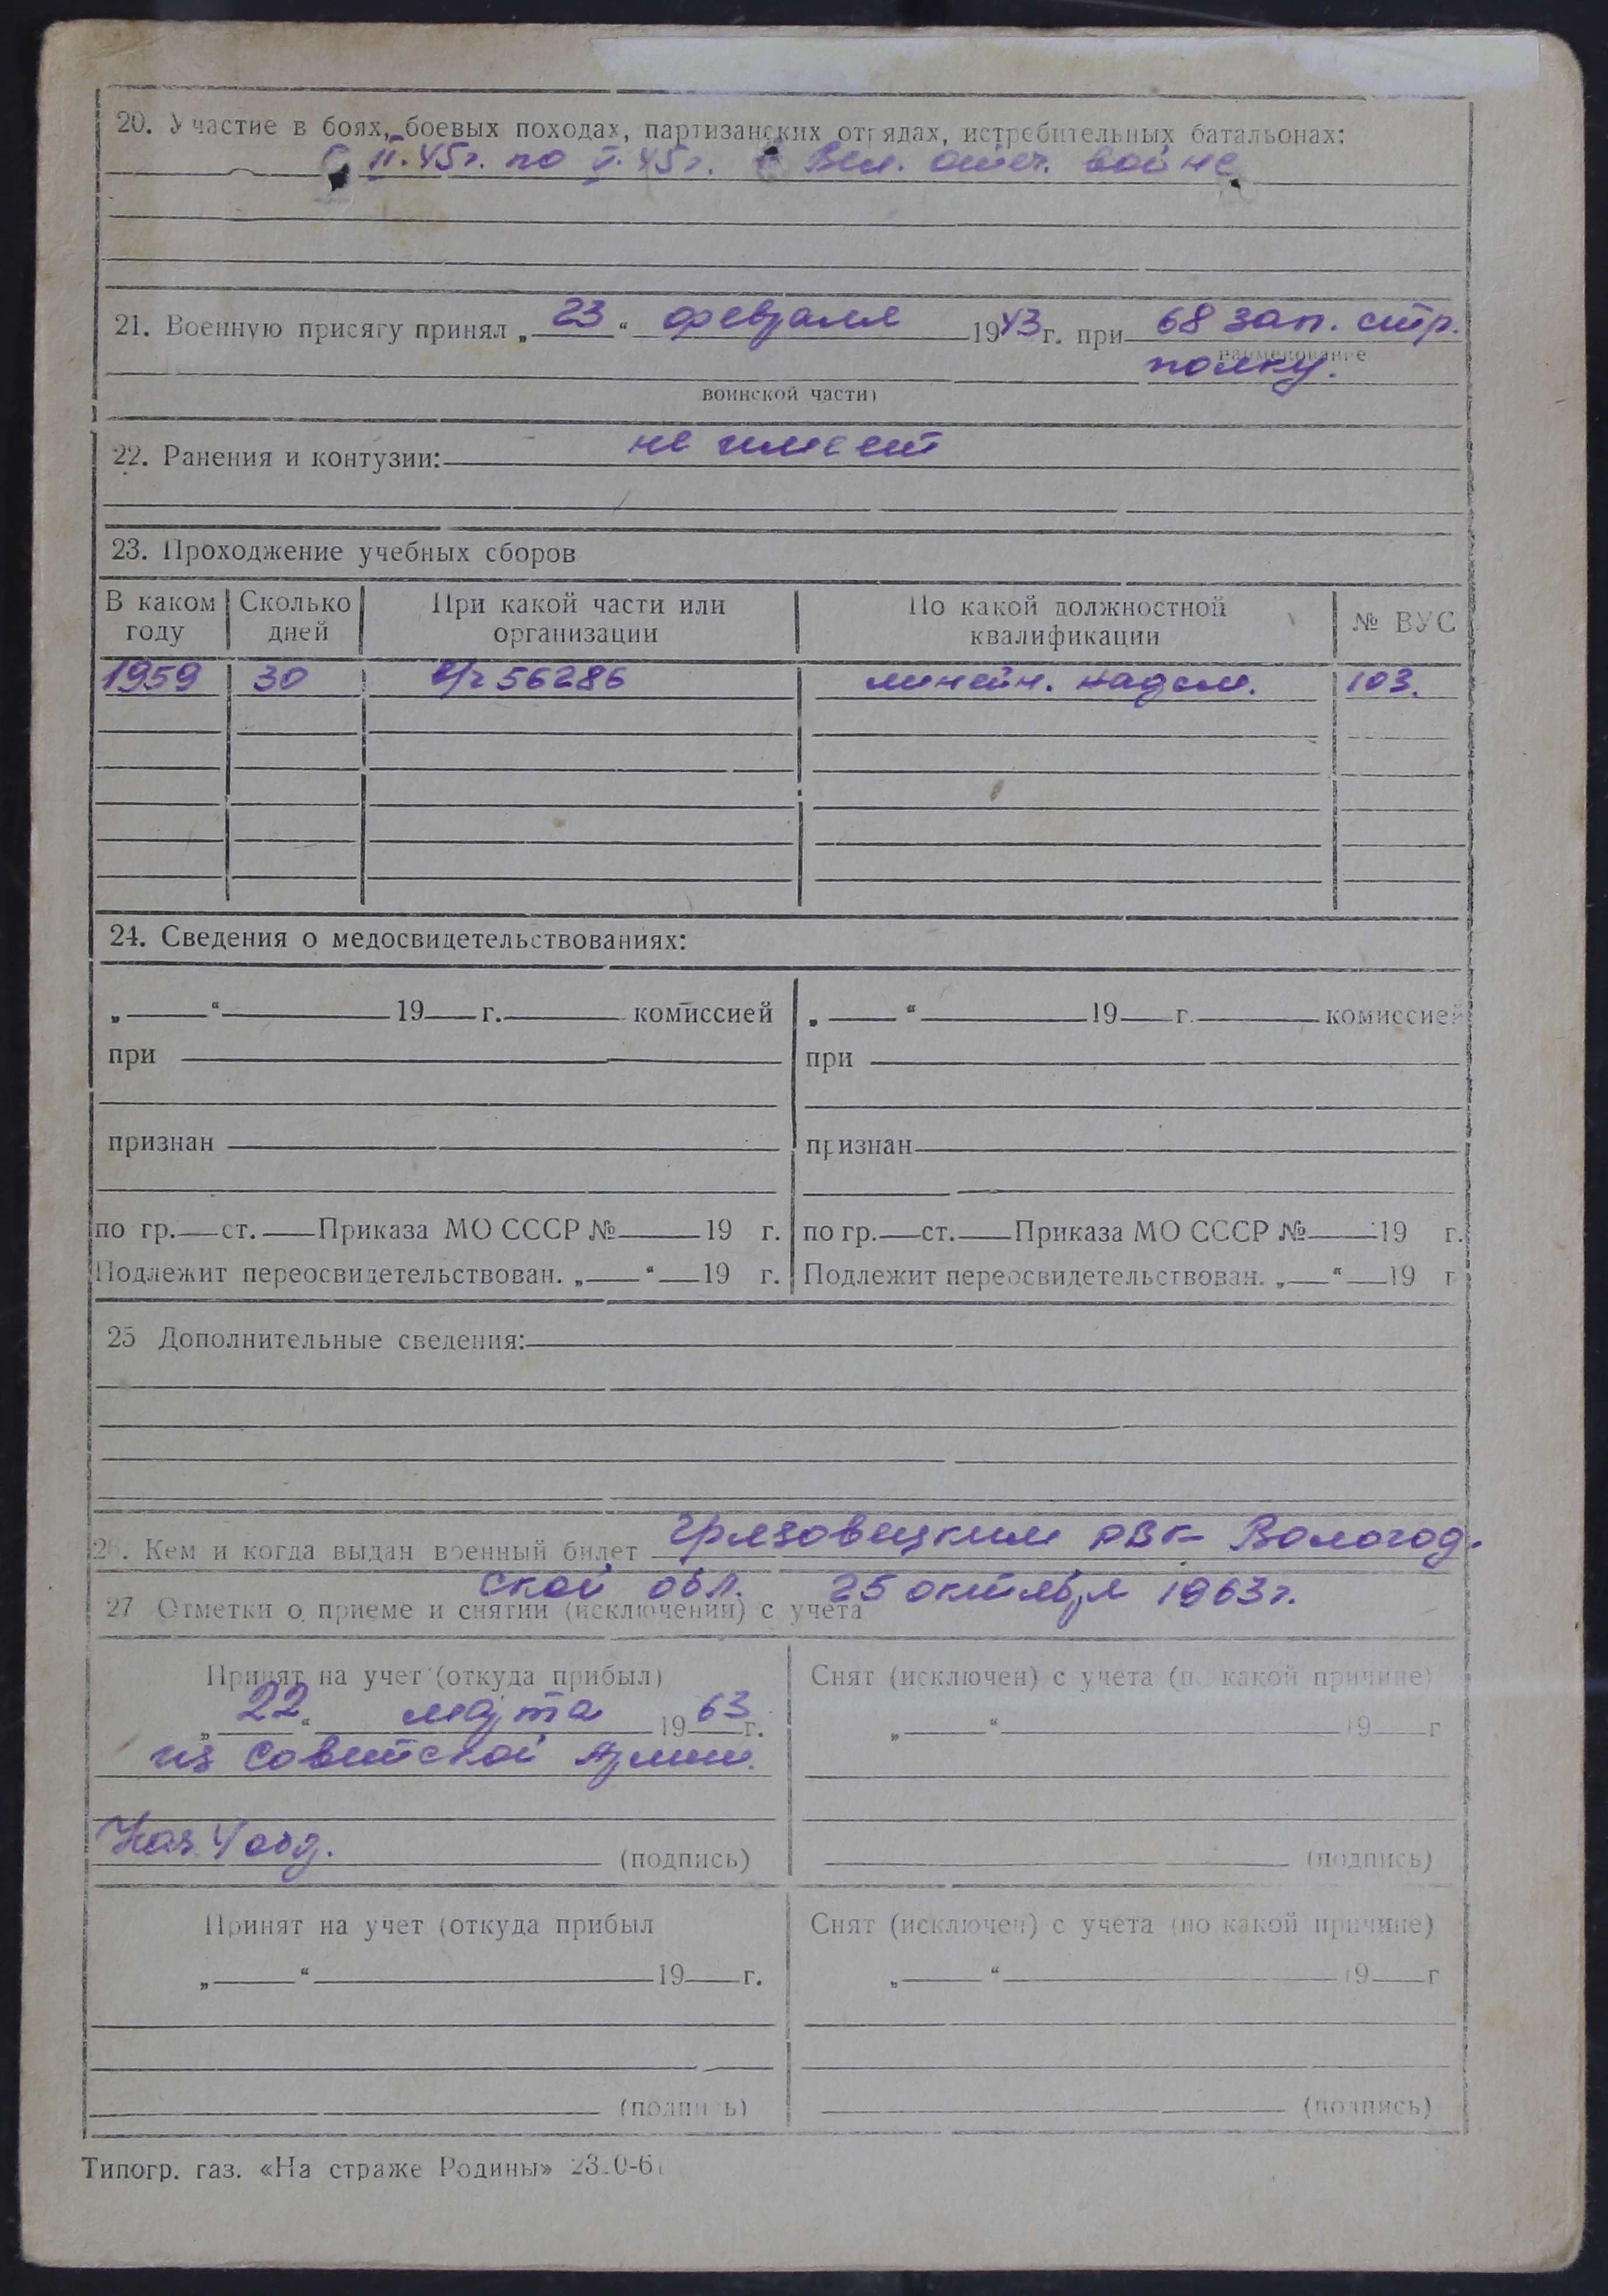 20. Участие в боях, боевых походах, партизанских отрядах, истребительных батальонах:
с II.45г. по V.45г. в Вел. отеч. войне
21. Военную присягу принял „23“ февраля 1943г. при 68 зап. стр.
наименование
полку.
воинской части)
22. Ранения и контузии: не имеет
23. Проходжение учебных сборов
В каком году Сколько дней При какой части или организации По какой должностной квалификации № ВУС
1959 30 в/ч 56286 линейн. надсм. 103.
24. Сведения о медосвидетельствованиях:
„ “ 19 г. комиссией „ “ 19 г. комиссией
при при
признан признан
по гр. ст. Приказа МО СССР № 19 г. по гр. ст. Приказа МО СССР № 19 г.
Подлежит переосвидетельствован. „ “ 19 г. Подлежит переосвидетельствован. „ “ 19 г
25 Дополнительные сведения:
26. Кем и когда выдан военный билет Грязовецким РВК Вологод.
ской обл. 25 октября 1963г.
27 Отметки о приеме и снятии (исключении) с учета
Принят на учет (откуда прибыл) Снят (исключен) с учета (по какой причине)
„22“ марта 1963 г. „ “ 19 г
из Советской Армии.
Нач. 4 отд. (подпись) (подпись)
Принят на учет (откуда прибыл Снят (исключен) с учета (по какой причине)
„ “ 19 г. „ “ 19 г
(подпись) (подпись)
Типогр. газ. «На страже Родины»